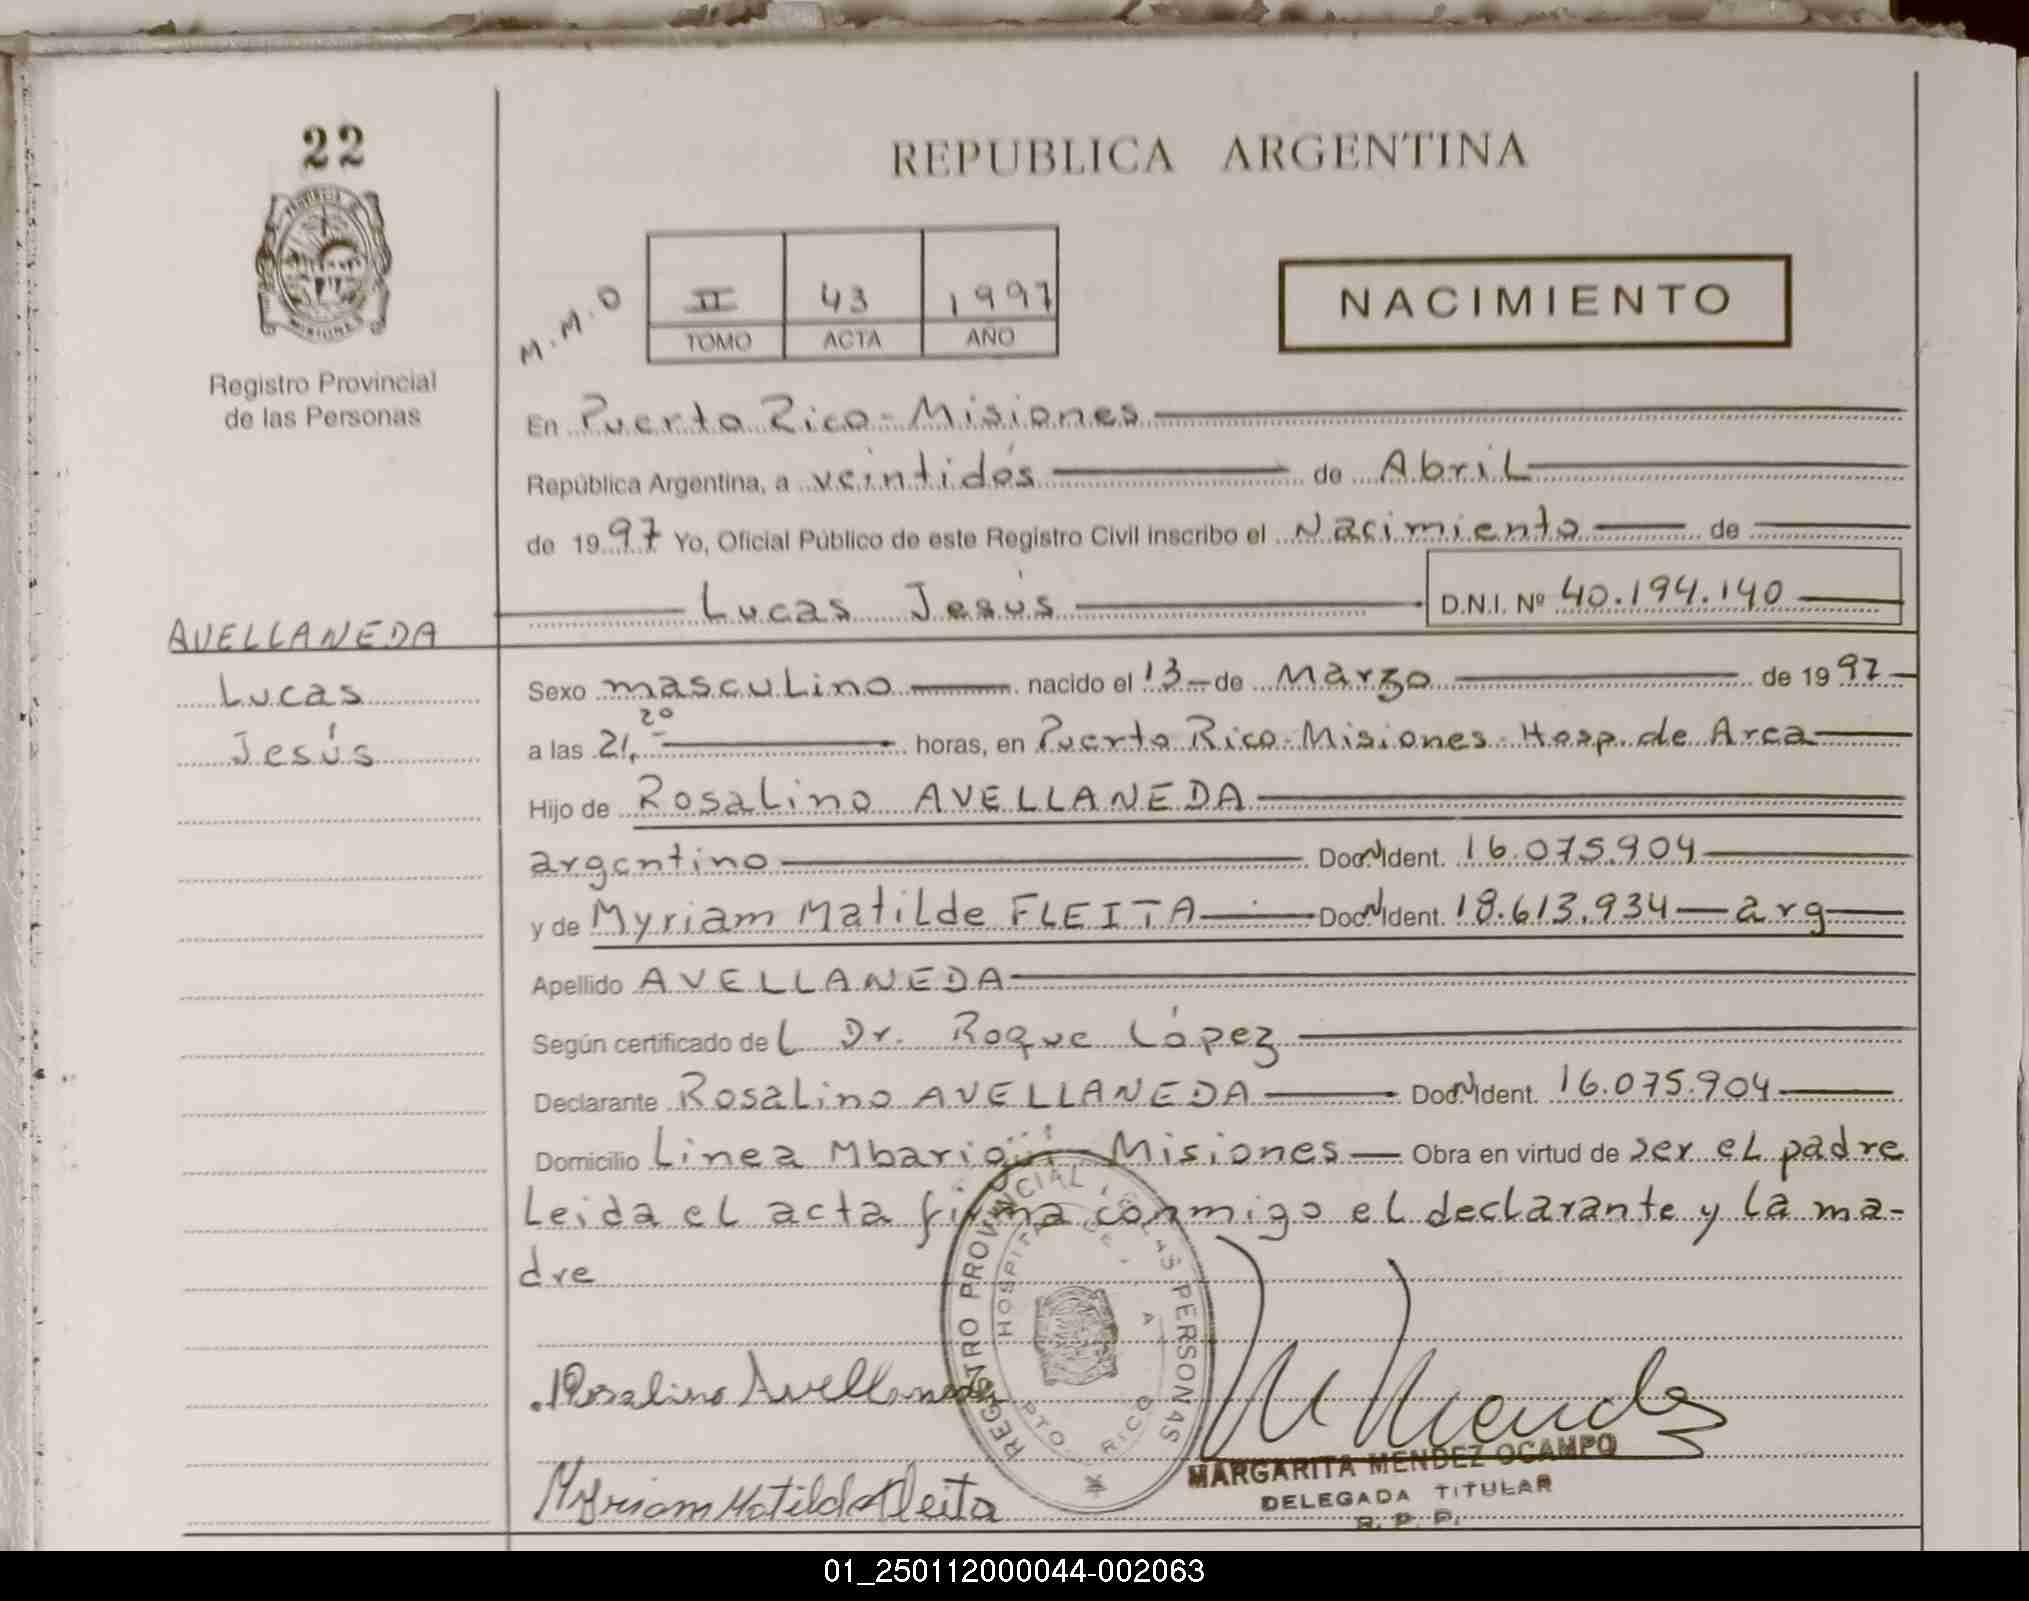 22
REPUBLICA ARGENTINA
M.M.O
II 43 1997
TOMO ACTA AÑO
NACIMIENTO
Registro Provincial
de las Personas
En Puerto Rico - Misiones
República Argentina, a veintidós de Abril
de 1997 Yo, Oficial Público de este Registro Civil inscribo el Nacimiento de
Lucas Jesús D.N.I. Nº 40.194.140
AVELLANEDA
Lucas
Jesús
Sexo masculino nacido el 13 de Marzo de 1997
a las 21,20 horas, en Puerto Rico - Misiones - Hosp. de Area
Hijo de Rosalino AVELLANEDA
argentino Doc. Ident. 16.075.904
y de Myriam Matilde FLEITA Doc. Ident. 18.613.934 - arg
Apellido AVELLANEDA
Según certificado del Dr. Roque López
Declarante Rosalino AVELLANEDA Doc. Ident. 16.075.904
Domicilio Linea Mbarigüi - Misiones Obra en virtud de ser el padre
Leida el acta firma conmigo el declarante y la ma-
dre
REGISTRO PROVINCIAL DE LAS PERSONAS
HOSPITAL DE A
PTO. RICO
Rosalino Avellaneda
Myriam Matilde Fleita
M Mendez
MARGARITA MENDEZ OCAMPO
DELEGADA TITULAR
R. P. P.
01_250112000044-002063